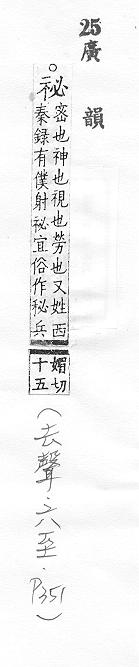 25 廣韻
○祕
密也神也視也勞也又姓西
秦錄有僕射祕宜俗作秘兵
媚切
十五
(去聲.六至.P351)